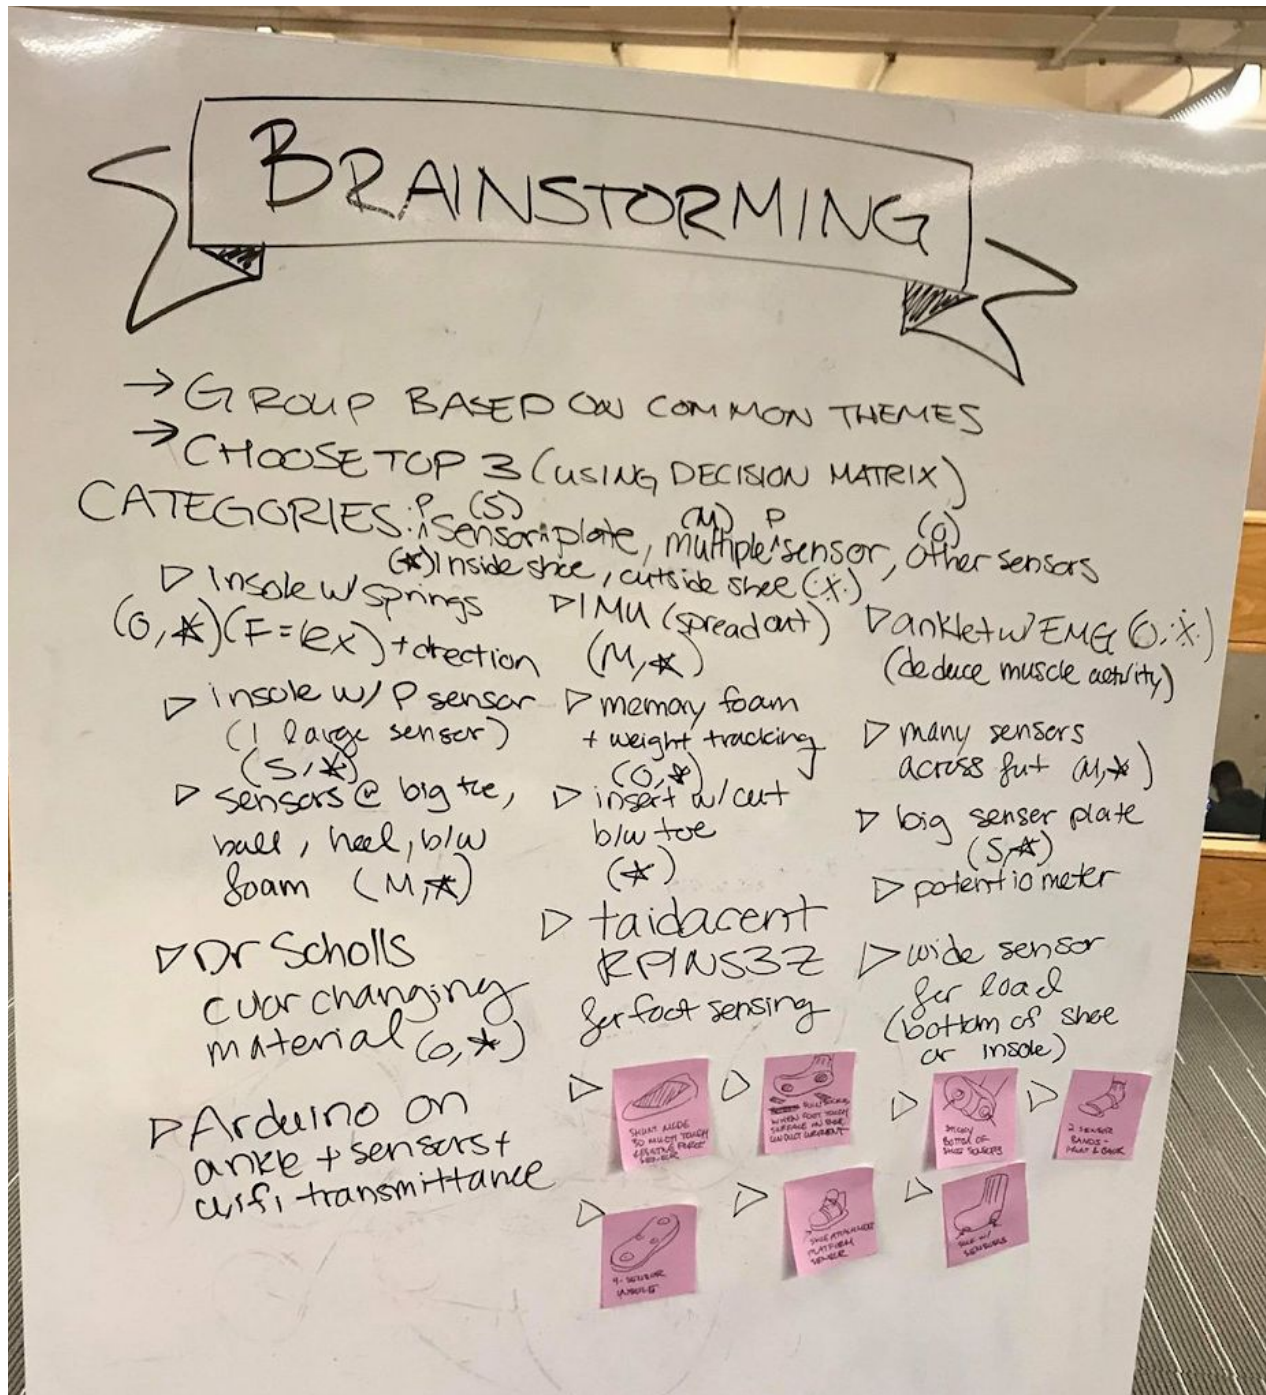 BRAINSTORMING
→ GROUP BASED ON COMMON THEMES
→ CHOOSE TOP 3 (USING DECISION MATRIX)
P (S) (M) P (O)
CATEGORIES: sensor plate, multiple sensor, other sensors
(*) Inside shoe, outside shoe (※)
▷ Insole w/ springs
(O, *) (F = kx) + direction
▷ insole w/ P sensor
(1 large sensor)
(S, *)
▷ sensors @ big toe,
ball, heel, b/w
foam (M, *)
▷ Dr Scholls
color changing
material (O, *)
▷ Arduino on
ankle + sensors +
wifi transmittance
▷ IMU (spread out)
(M, *)
▷ memory foam
+ weight tracking
(O, *)
▷ insert w/ cut
b/w toe
(*)
▷ taidacent
RPINS3Z
for foot sensing
▷ anklet w/ EMG (O, ※)
(deduce muscle activity)
▷ many sensors
across foot (M, *)
▷ big sensor plate
(S, *)
▷ potentiometer
▷ wide sensor
for load
(bottom of shoe
or insole)
▷
SHUNT MODE
SO MULTI TOUCH
RESISTIVE FORCE
SENSOR
▷
WHEN FOOT TOUCH
SURFACE
CONDUCT CURRENT
▷
STICKY
BOTTOM OF
SHOE SENSORS
▷
2 SENSOR
BANDS -
FRONT & BACK
▷
4-SENSOR
INSOLE
▷
SHOE ATTACHMENT
PLATFORM
SENSOR
▷
SOCK W/
SENSORS